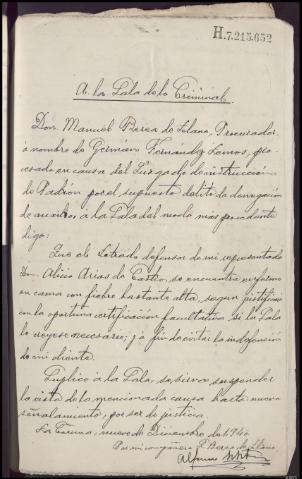 H.7.215.652
A la Sala de lo Criminal
Don Manuel Berea de Solano, Procurador,
a nombre de Germán Fernandez Lamos, pro-
cesado en causa del Juzgado de instrucción
de Padrón por el supuesto delito de denegación
de auxilios, a la Sala del modo más procedente
digo:
Que el Letrado defensor de mi representado
Don Alicio Arias de Castro, se encuentra enfermo
en cama con fiebre bastante alta, segun justificaré
con la oportuna certificación facultativa, si la Sala
lo creyese necesario; y a fin de evitar la indefensión
de mi cliente.
Suplico a la Sala, se sirva suspender
la vista de la mencionada causa hasta nuevo
señalamiento, por ser de justicia.
La Coruña, nueve de Diciembre de 194
Por mi compañero P. Berea de Solano,
Alfonso